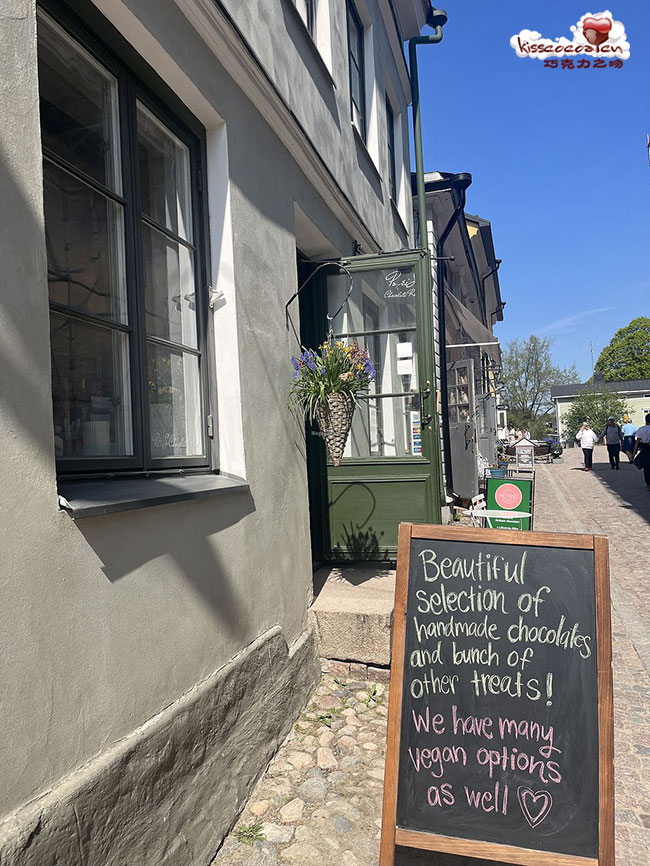 kisscocoaten
巧克力之吻
Beautiful
selection of
handmade chocolates
and bunch of
other treats!
We have many
vegan options
as well